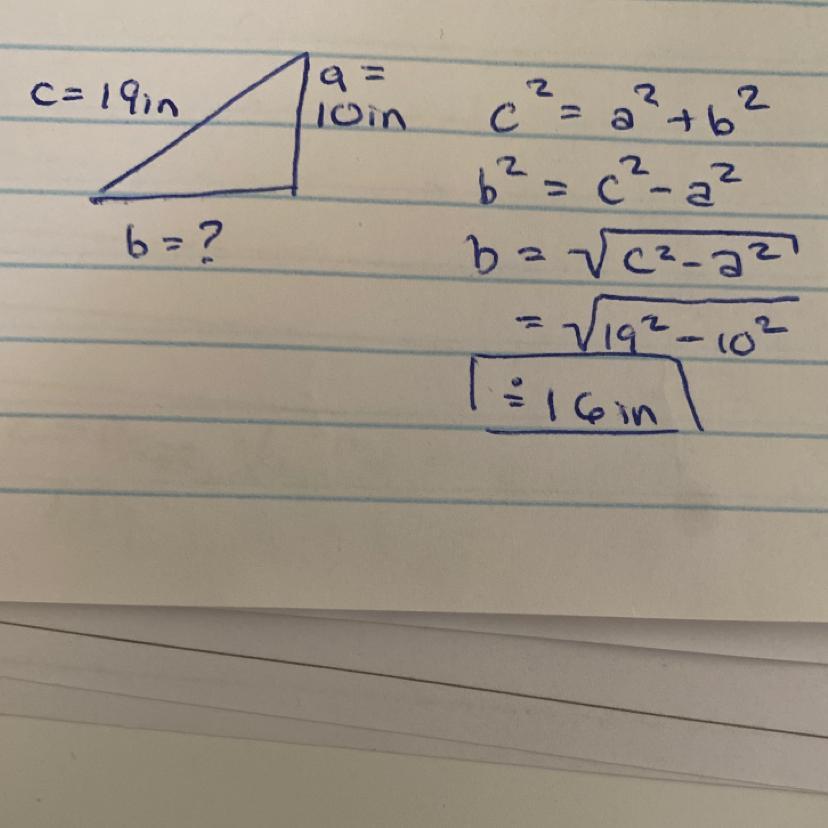 c = 19in
a =
10in
b = ?
c² = a² + b²
b² = c² - a²
b = √(c² - a²)
= √(19² - 10²)
≐ 16in